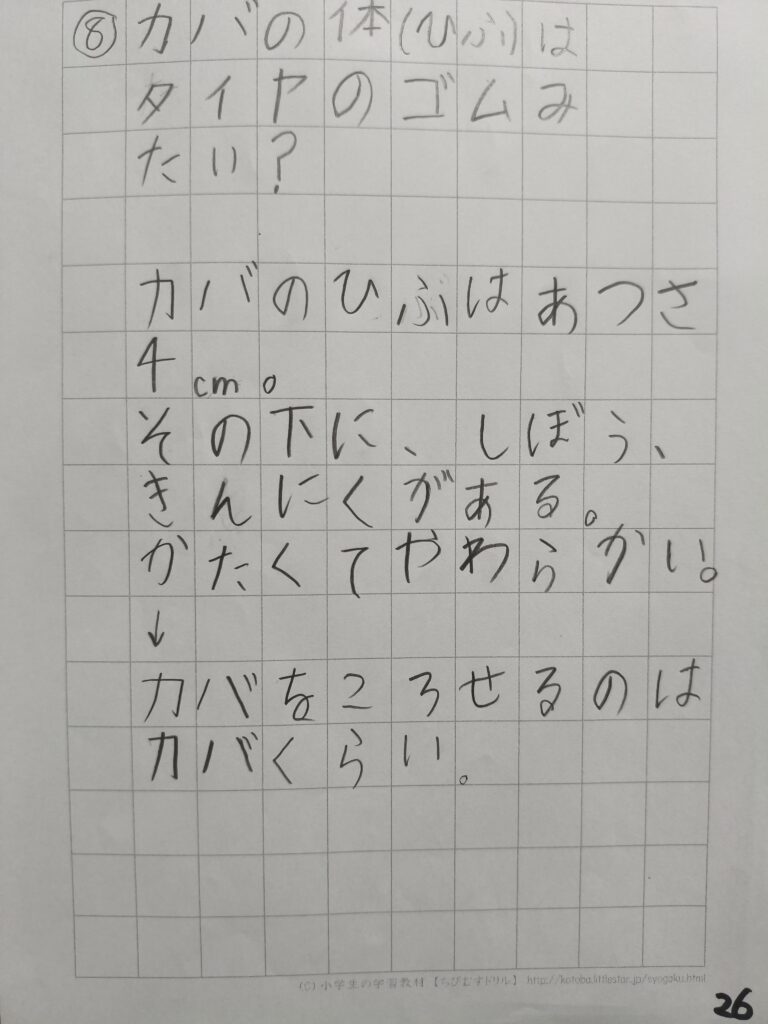 ⑧カバの体(ひふ)は
タイヤのゴムみ
たい?
カバのひふはあつさ
4cm。
その下に、しぼう、
きんにくがある。
かたくてやわらかい。
↓
カバをころせるのは
カバくらい。
(C) 小学生の学習教材【ちびむすドリル】 http://kotoba.littlestar.jp/syogaku.html
26